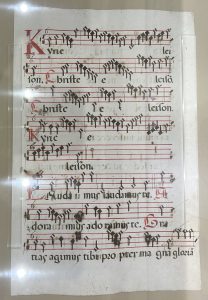 Kyrie elei
son. Christe eleison.
Christe eleison.
Kyrie e
leison.
Laudamus laudamus te. A
dora mus adoramus te. Gra
tias agimus tibi propter magna gloria